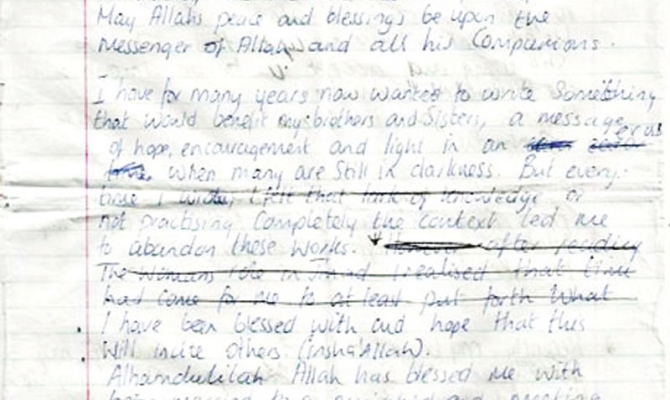 May Allahs peace and blessings be upon the
Messenger of Allah and all his Companions.
I have for many years now wanted to write something
that would benefit my brothers and Sisters, a message
of hope, encouragement and light in an
when many are still in darkness. But every
time I wrote, I felt that lack of knowledge or
not practising completely the context led me
to abandon these works. However after reading
The Womans role in Jihad I realised that time
had come for me to at least put forth what
I have been blessed with and hope that this
will incite others (insha'Allah).
Alhamdulilah Allah has blessed me with
being married to a